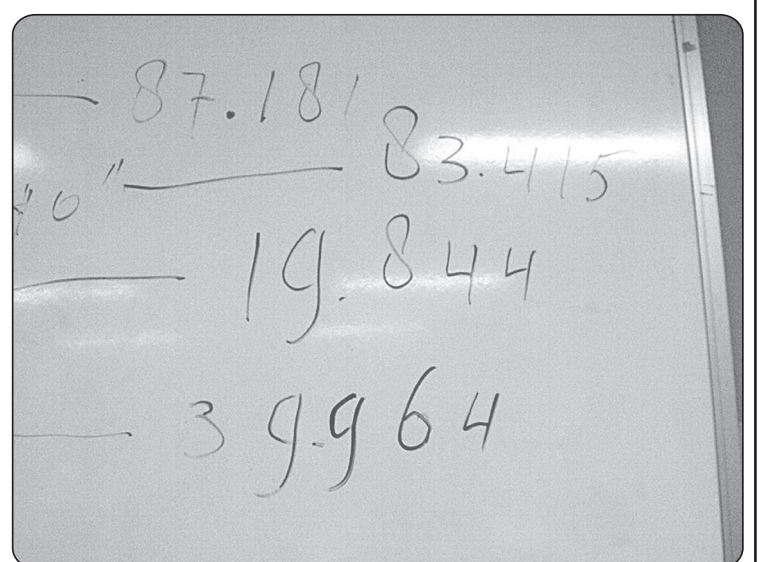 — 87.181
"o" — 83.415
— 19.844
— 39.964